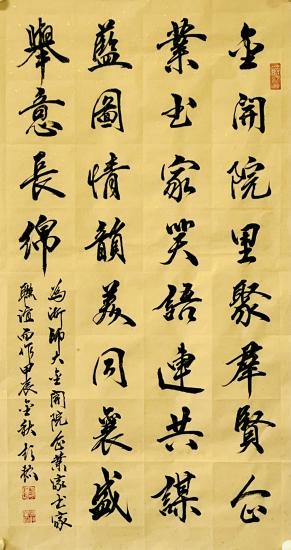 金開院里聚羣賢企
業书家笑語連共謀
藍圖情韻美同襄盛
舉意長綿
為浙師大金開院企業家书家
聯誼而作甲辰金秋